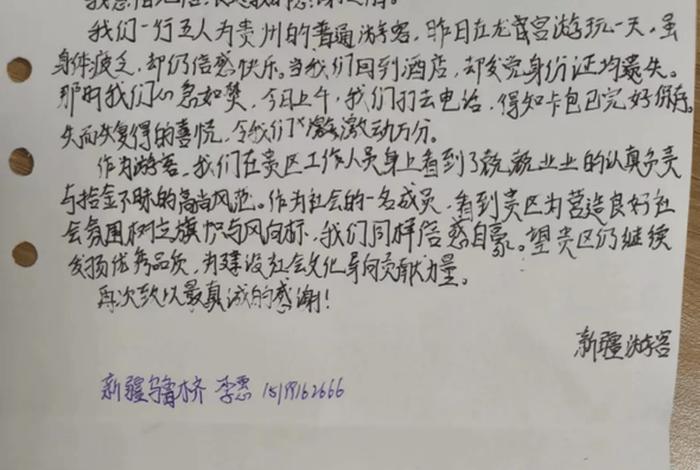 我们一行五人为贵州的普通游客，昨日在龙宫游玩一天，虽
身体疲乏，却仍倍感快乐。当我们回到酒店，却发觉身份证均遗失。
那时我们心急如焚，今日上午，我们打去电话，得知卡包已完好保存。
失而复得的喜悦，令我们激动万分。
作为游客，我们在贵区工作人员身上看到了兢兢业业的认真负责
与拾金不昧的高尚风范。作为社会的一名成员，看到贵区为营造良好社
会氛围树立旗帜与风向标，我们同样倍感自豪。望贵区仍继续
发扬优秀品质，为建设社会文化导向贡献力量。
再次致以最真诚的感谢！
新疆游客
新疆乌鲁木齐 李 15199162666